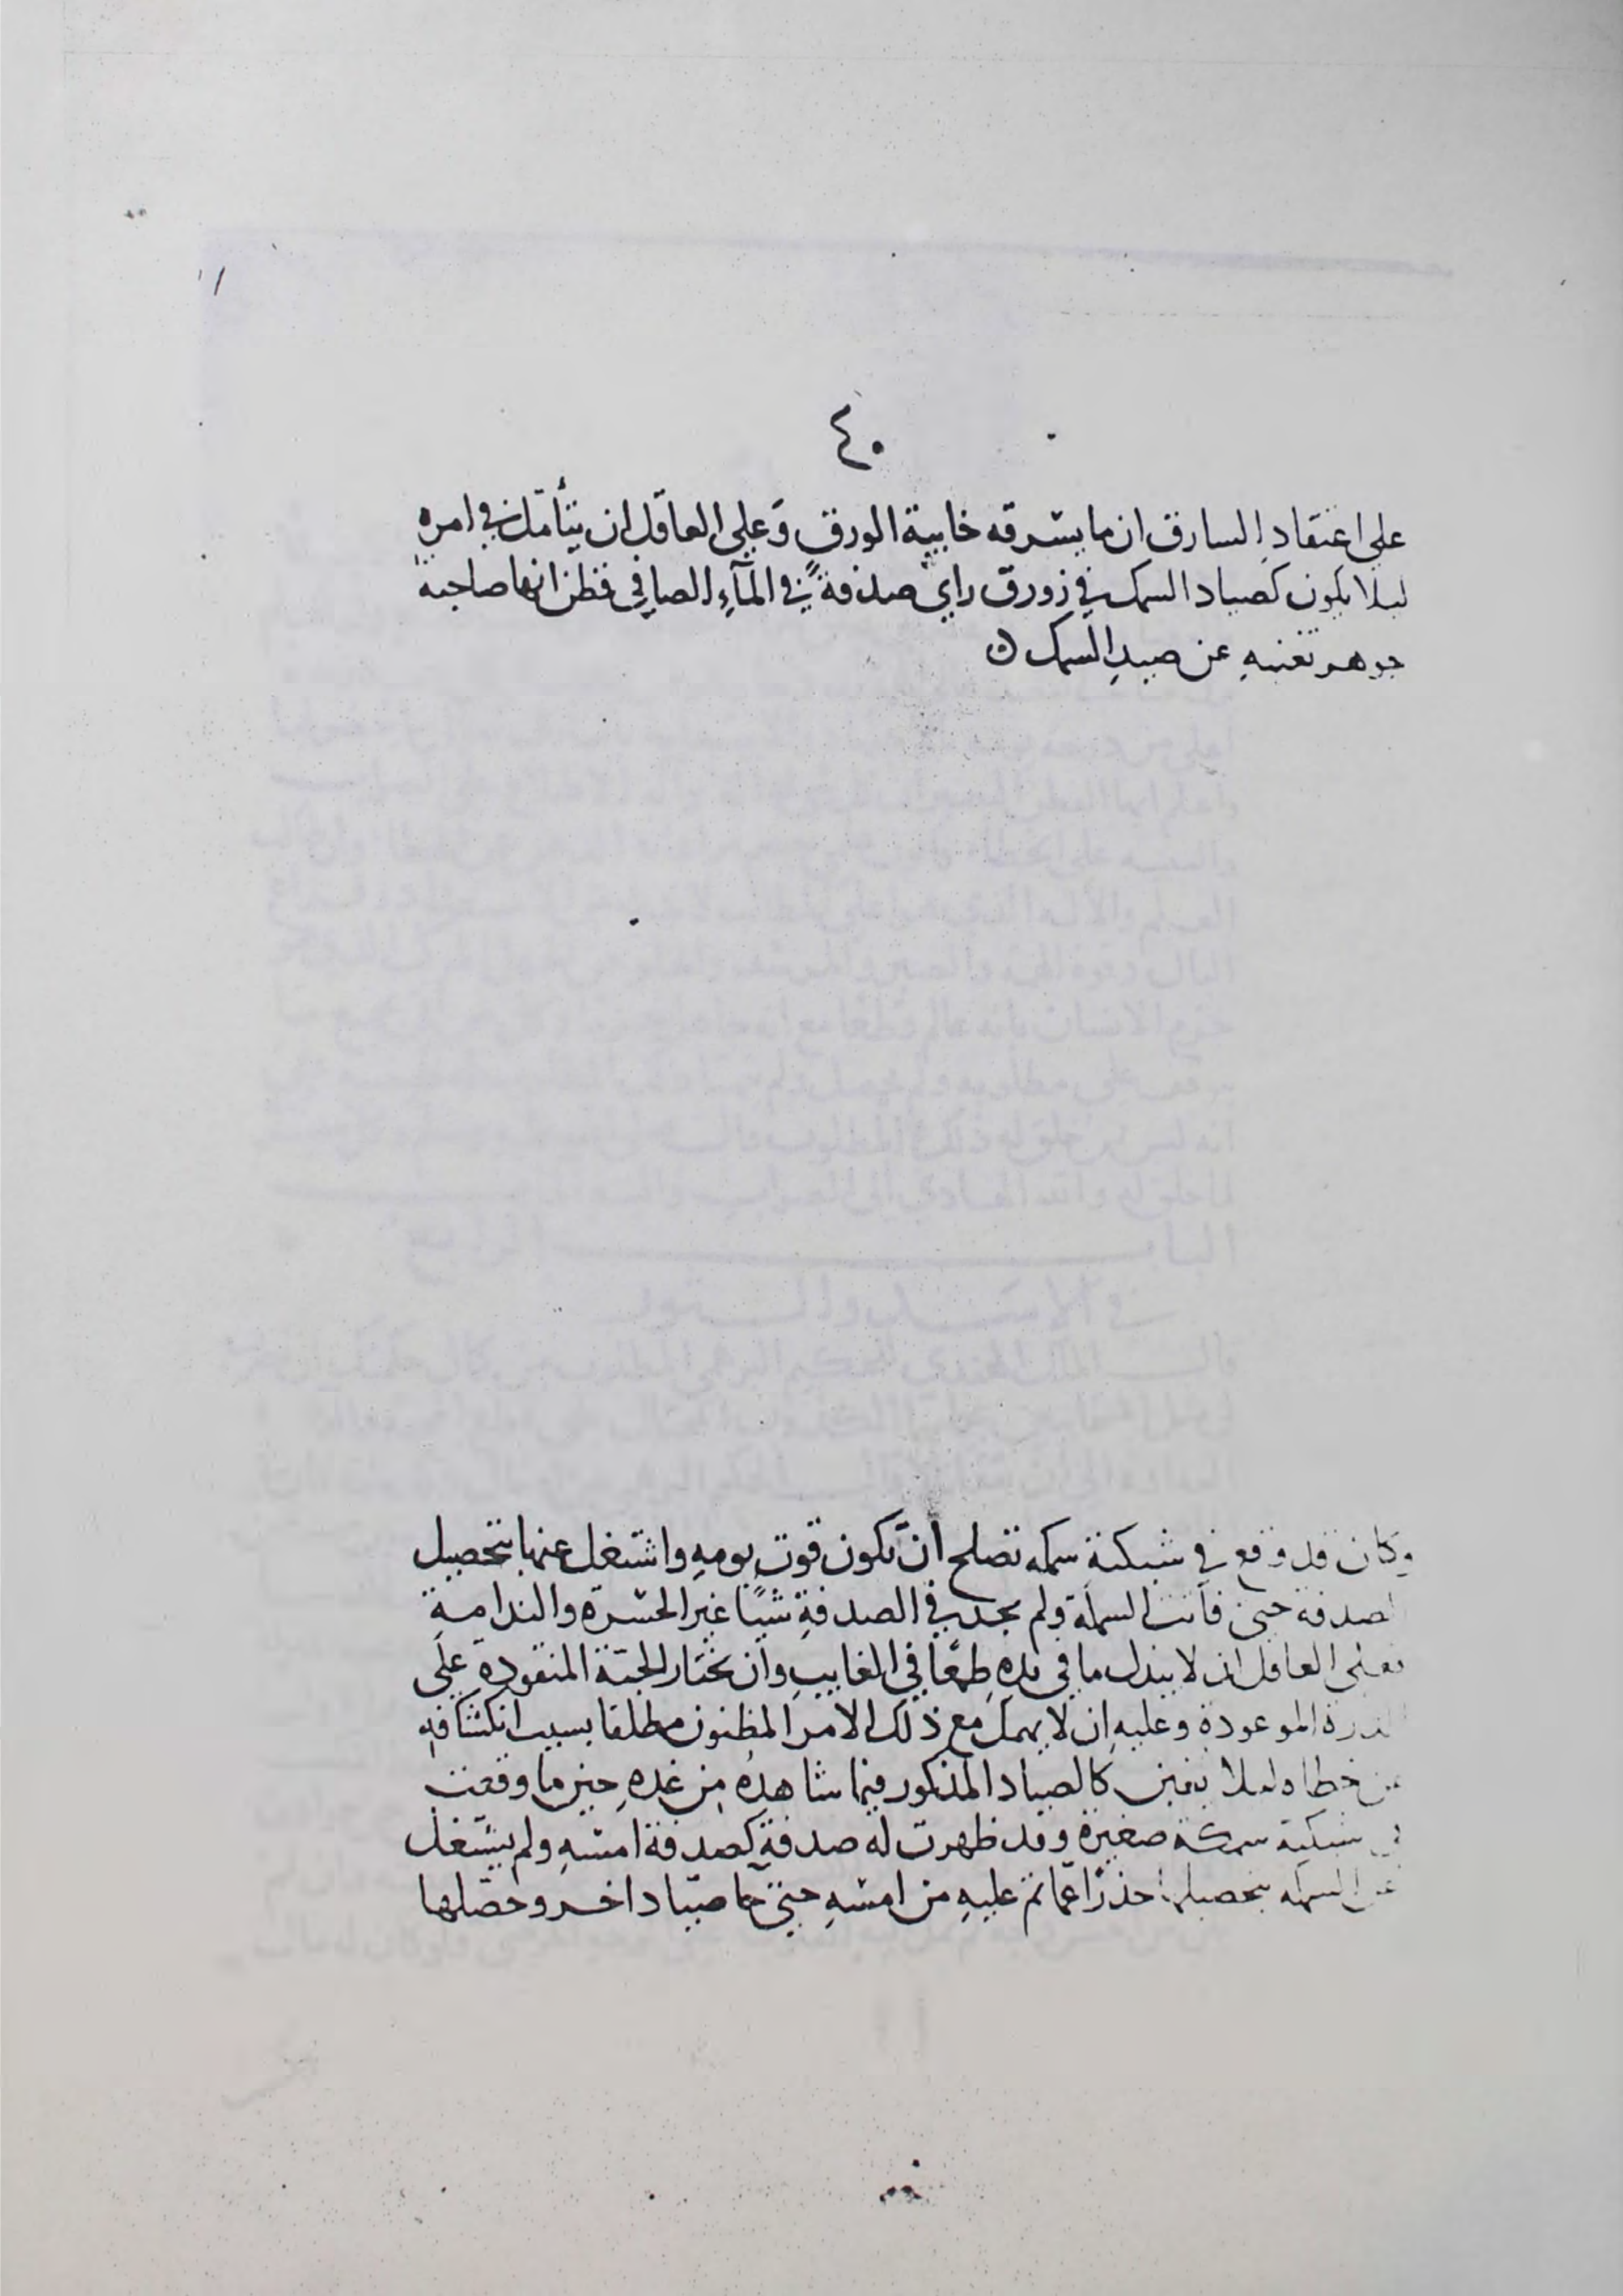 ٤٠
على اعتقاد السارق ان ما يسرقه خابية الورق وعلى العاقل ان يتأمل في امره
ليلا يكون كصياد السمك في زورق راي صدفةً في المآءِ الصافي فظن انها صاحبة
جوهر تغنيهِ عن صيدِ السمك
وكان قد وقع في شبكته سمكه تصلح ان تكون قوت يومهِ واشتغل عنها بتحصيل
الصدفة حتى فاتت السمكة ولم يجد في الصدفةِ شيًا غير الحسرة والندامةِ
فعلى العاقل ان لا يبذل ما في يدهِ طمعًا في الغايبِ وان يختار الحبة المنقودة على
الدرة الموعودة وعليهِ ان لا يهمل مع ذلك الامر المظنون مطلقا بسبب انكشافهِ
عن خطاه ليلا يغبن كالصياد المذكور فيما شاهدهُ من غدهِ حين ما وقعت
في شبكته سمكة صغيرة وقد ظهرت له صدفة كصدفة امسهِ ولم يشتغل
عن السمكه بتحصيلها حذرًا عمّا تم عليهِ من امسهِ حتى جآ صيّاد اخر وحصّلها